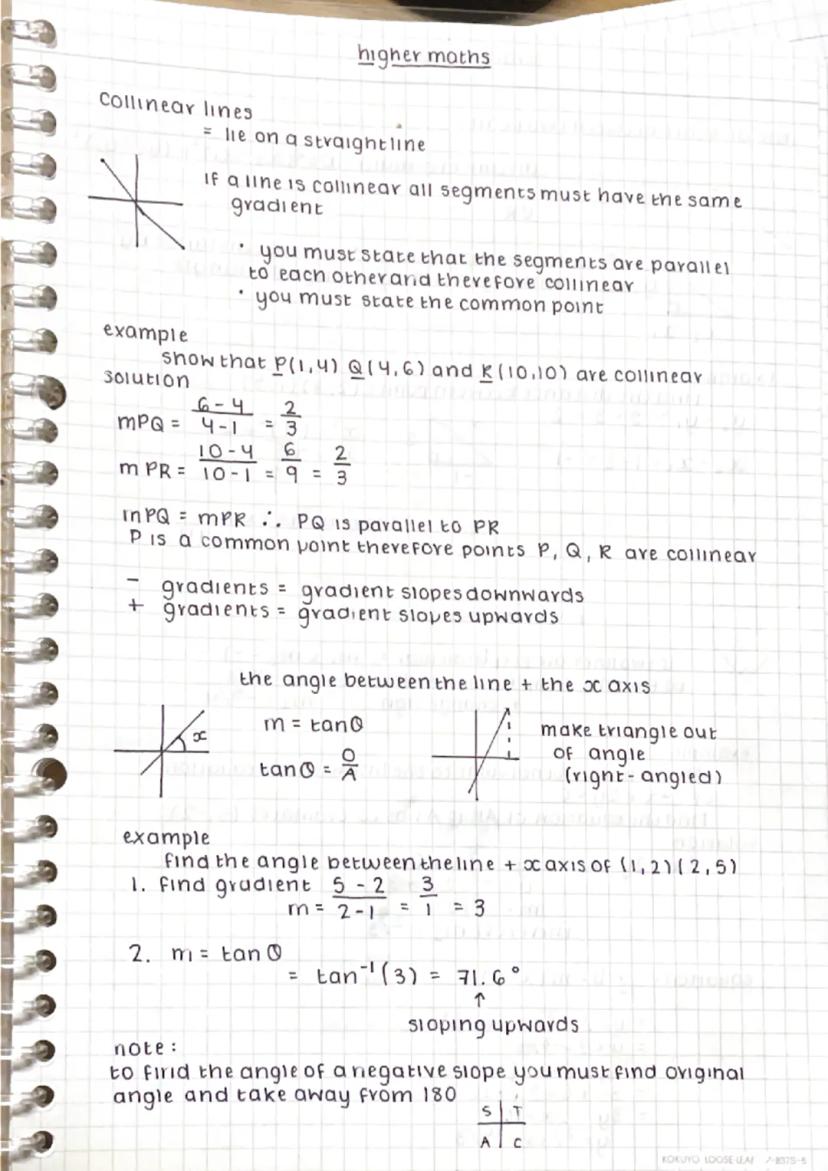 higher maths
collinear lines
= lie on a straight line
If a line is collinear all segments must have the same
gradient
• you must state that the segments are parallel
to each other and therefore collinear
• you must state the common point
example
show that P(1,4) Q(4,6) and R(10,10) are collinear
solution
mPQ = (6-4)/(4-1) = 2/3
mPR = (10-4)/(10-1) = 6/9 = 2/3
mPQ = mPR ∴ PQ is parallel to PR
P is a common point therefore points P, Q, R are collinear
- gradients = gradient slopes downwards
+ gradients = gradient slopes upwards
the angle between the line + the x axis
x
m = tanθ
tanθ = O/A
make triangle out
of angle
(right-angled)
example
find the angle between the line + x axis of (1,2)(2,5)
1. find gradient
m = (5-2)/(2-1) = 3/1 = 3
2. m = tanθ
= tan⁻¹(3) = 71.6°
↑
sloping upwards
note:
to find the angle of a negative slope you must find original
angle and take away from 180
S T
A C
KOKUYO LOOSE-LEAF